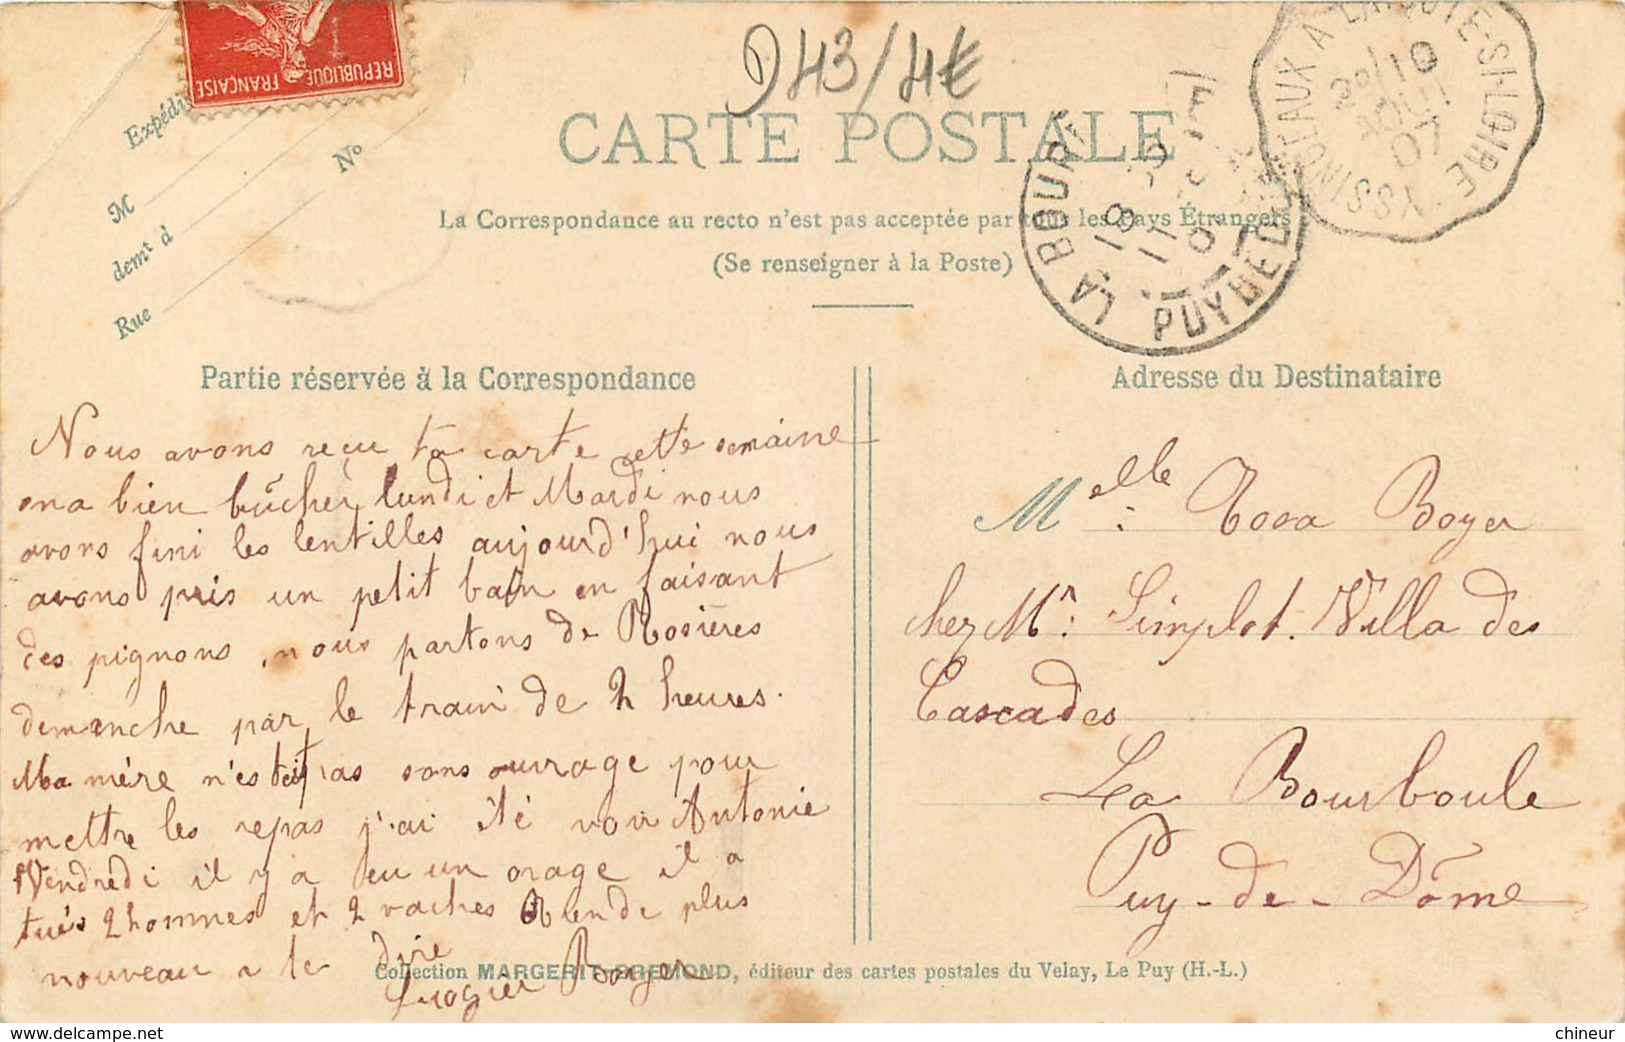 REPUBLIQUE FRANÇAISE
D43/4€
YSSINGEAUX A LAVOUTE-S-LOIRE
10
AOUT
07
LA BOURBOULE
PUY DE DOME
CARTE POSTALE
La Correspondance au recto n'est pas acceptée par tous les Pays Étrangers
(Se renseigner à la Poste)
M
demt à
Rue
No
Partie réservée à la Correspondance
Nous avons reçu ta carte cette semaine
on a bien bûcher lundi et Mardi nous
avons fini les lentilles aujourd'hui nous
avons pris un petit bain en faisant
des pignons, nous partons de Rosières
demenche par le train de 2 heures.
Ma mère n'est pas sans ouvrage pour
mettre les repas j'ai été voir Antonie
Vendredi il y a eu un orage il a
tués 2 hommes et 2 vaches plus
nouveau a le dire
Boyer
Adresse du Destinataire
Melle : Rosa Boyer
chez Mr : Simplot. Villa des
Cascades
La Bourboule
Puy-de-Dôme
Collection MARGERIT-BREMOND, éditeur des cartes postales du Velay, Le Puy (H.-L.)
www.delcampe.net
chineur